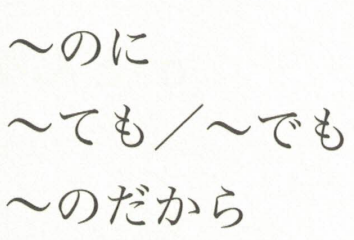 ～のに
～ても／～でも
～のだから